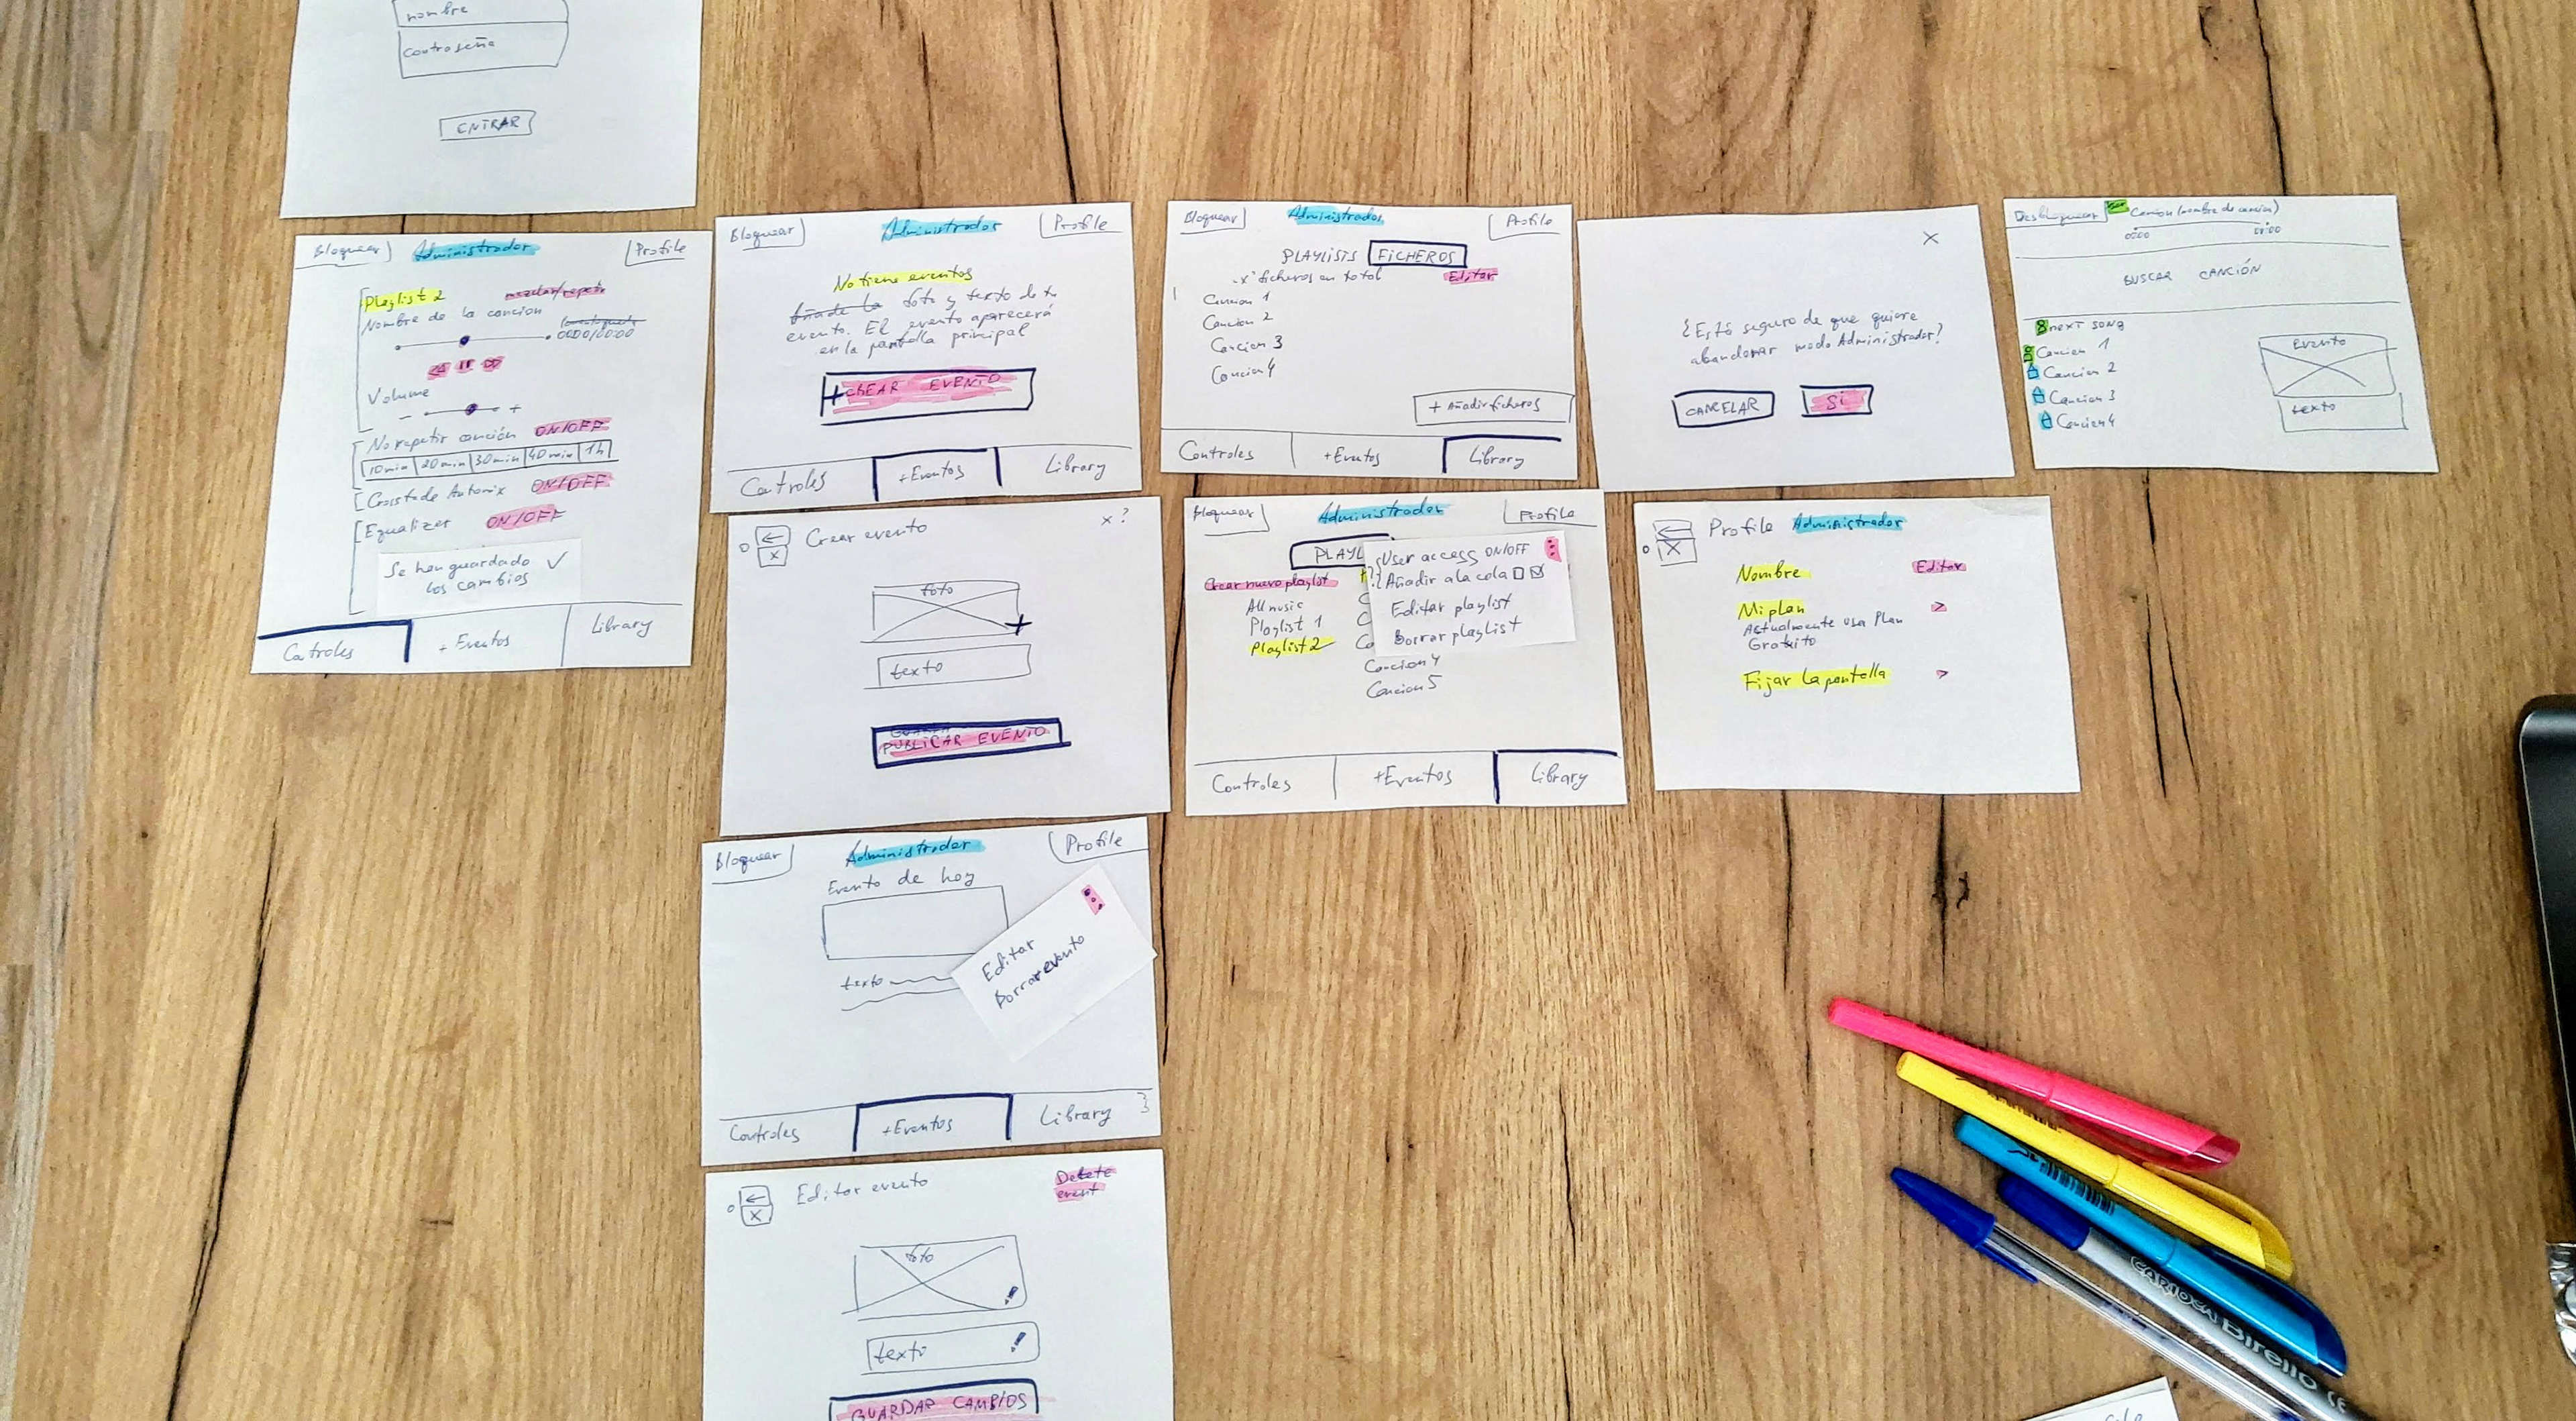 nombre
contraseña
ENTRAR
Bloquear Administrador Profile
Playlist 2 mezclar/repetir
Nombre de la canción
00:00/00:00
Volume
- +
No repetir canción ON/OFF
10min 20min 30min 40min 1h
Crossfade Automix ON/OFF
Equalizer ON/OFF
Se han guardado ✓
los cambios
Controles +Eventos Library
Bloquear Administrador Profile
No tiene eventos
Añade la foto y texto de tu
evento. El evento aparecerá
en la pantalla principal
+ CREAR EVENTO
Controles +Eventos Library
Bloquear Administrador Profile
PLAYLISTS FICHEROS
"x" ficheros en total Editar
Cancion 1
Cancion 2
Cancion 3
Cancion 4
+ Añadir ficheros
Controles +Eventos Library
X
¿Está seguro de que quiere
abandonar modo Administrador?
CANCELAR SI
Desbloquear Cancion (nombre de cancion)
00:00 00:00
BUSCAR CANCIÓN
next song
Cancion 1
Cancion 2
Cancion 3
Cancion 4
Evento
texto
← Crear evento x?
x
foto
+
texto
PUBLICAR EVENTO
Bloquear Administrador Profile
PLAYL
Crear nuevo playlist
All music
Playlist 1
Playlist 2
User access ON/OFF
Añadir a la cola
Editar playlist
Borrar playlist
Co
Cancion 4
Cancion 5
Controles +Eventos Library
← Profile Administrador
X
Nombre Editar
Mi plan >
Actualmente usa Plan
Gratuito
Fijar la pantalla >
Bloquear Administrador Profile
Evento de hoy
texto
Editar
Borrar evento
Controles +Eventos Library
← Editar evento Delete
x event
foto
texto
GUARDAR CAMBIOS
CARIOCA Birello